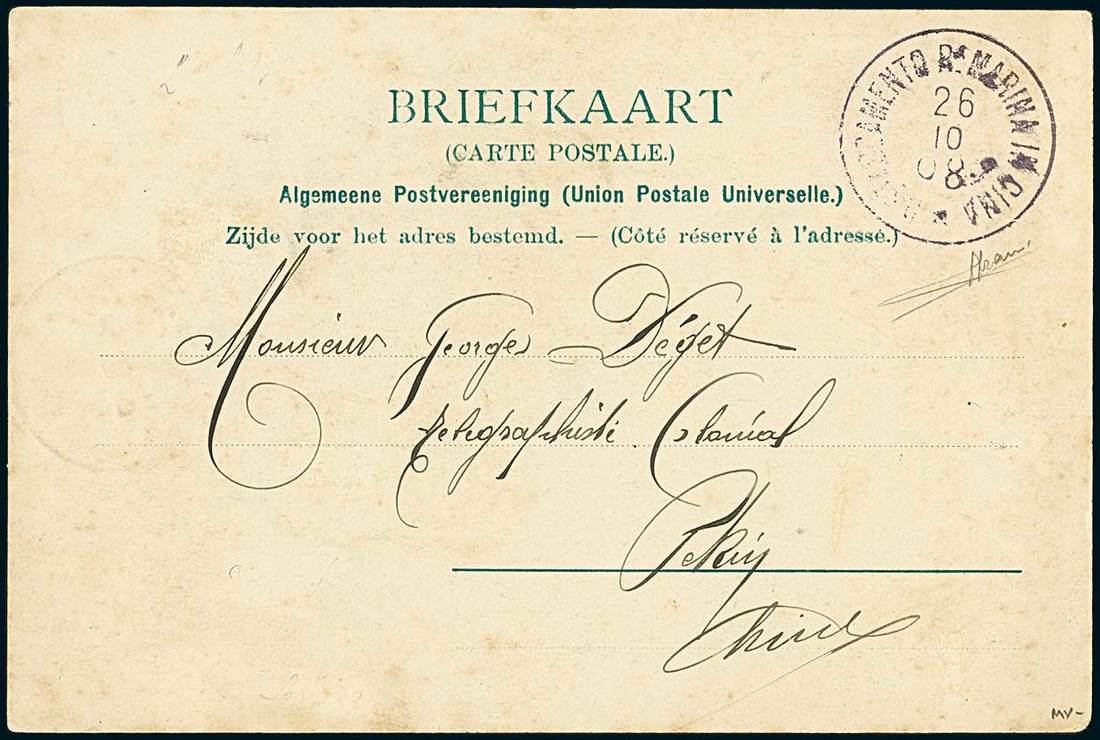 BRIEFKAART
(CARTE POSTALE.)
Algemeene Postvereeniging (Union Postale Universelle.)
Zijde voor het adres bestemd. — (Côté réservé à l'adresse.)
DISTACCAMENTO Rª MARINA IN CINA
26
10
08
Monsieur Georges Déget
telegraphiste Colonial
Pekin
Chine
MV-